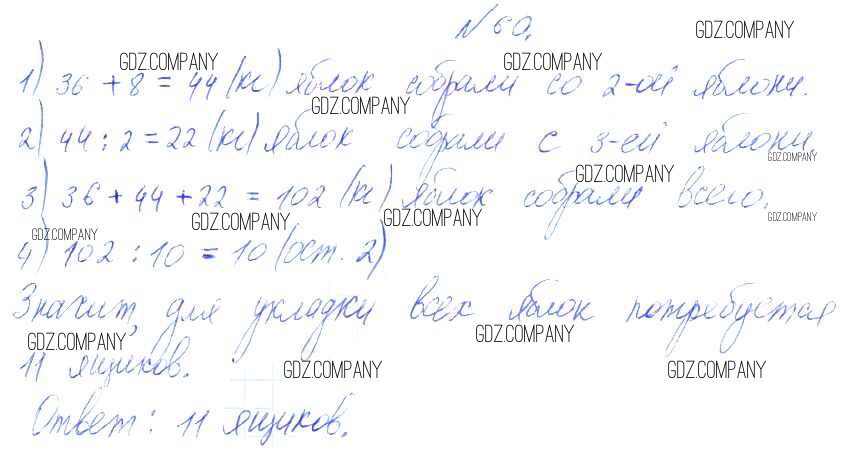 №60.
1) 36 + 8 = 44 (кг) яблок собрали со 2-ой яблони.
2) 44 : 2 = 22 (кг) яблок собрали с 3-ей яблони.
3) 36 + 44 + 22 = 102 (кг) яблок собрали всего.
4) 102 : 10 = 10 (ост. 2)
Значит, для укладки всех яблок потребуется
11 ящиков.
Ответ: 11 ящиков.
GDZ.COMPANY
GDZ.COMPANY
GDZ.COMPANY
GDZ.COMPANY
GDZ.COMPANY
GDZ.COMPANY
GDZ.COMPANY
GDZ.COMPANY
GDZ.COMPANY
GDZ.COMPANY
GDZ.COMPANY
GDZ.COMPANY
GDZ.COMPANY
GDZ.COMPANY